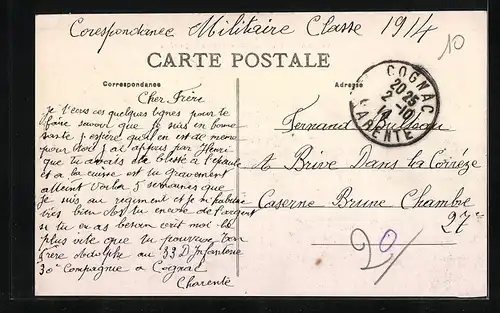 Corespondance Militaire Classe 1914
10
CARTE POSTALE
Correspondance
Adresse
COGNAC
20 25
2 - 10
14
CHARENTE
Cher Frère
je t'écris ces quelques lignes pour te
faire savoir que je suis en bonne
santé j espère qu'il en est de même
pour toi j ai appris par Henri
que tu avais été blessé à l'épaule
et a la cuisse es tu gravement
atteint voila 5 semaines que
je suis au regiment et je m'habitue
très bien as tu encore de l'argent
si tu en as besoin ecrit moi le
plus vite que tu pouvras ton
frère Adolphe au 33 D'Infanterie
30e Compagnie a Cognac
Charente
Fernand
A Brive Dans la Corrèze
Caserne Brune Chambre
27e
20/